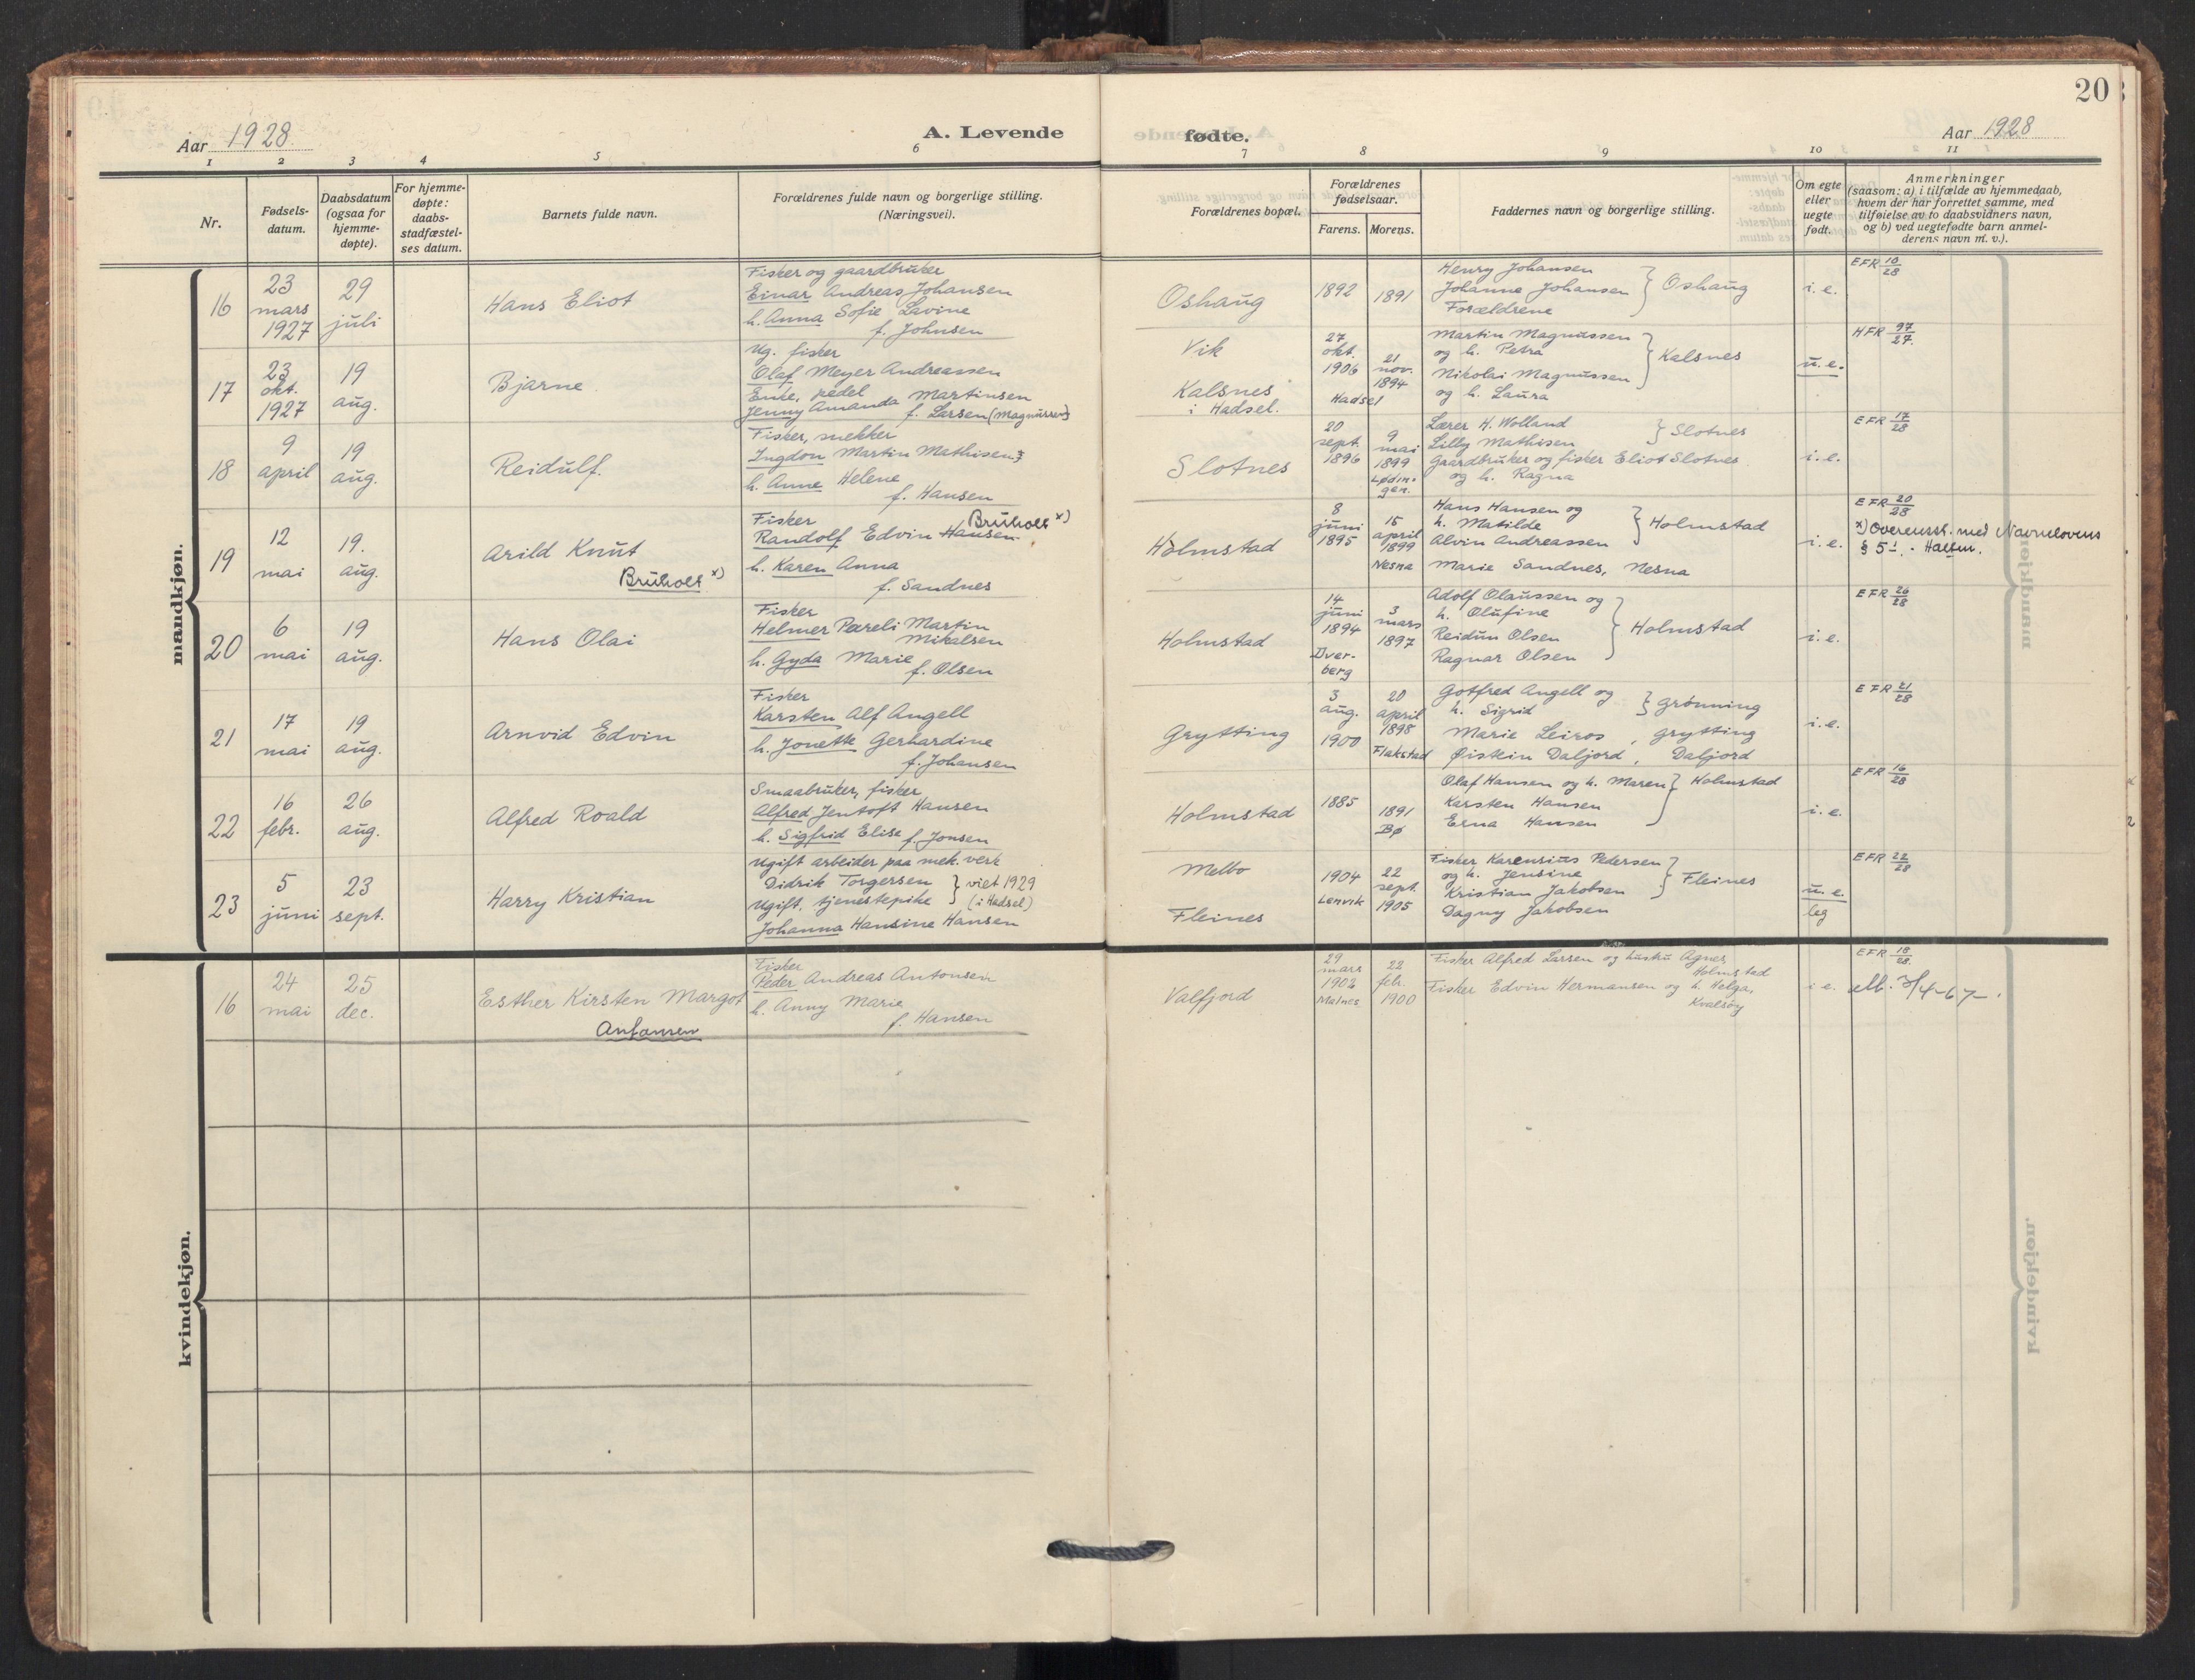 20
Aar 1928
A. Levende fødte.
Aar 1928
1 2 3 4 5 6 7 8 9 10 11
Nr.
Fødsels-
datum.
Daabsdatum
(ogsaa for
hjemme-
døpte).
For hjemme-
døpte:
daabs-
stadfæstel-
ses datum.
Barnets fulde navn.
Forældrenes fulde navn og borgerlige stilling.
(Næringsvei).
Forældrenes bopæl.
Forældrenes
fødselsaar.
Farens. Morens.
Faddernes navn og borgerlige stilling.
Om egte
eller
uegte
født.
Anmerkninger
(saasom: a) i tilfælde av hjemmedaab,
hvem der har forrettet samme, med
tilføielse av to daabsvidners navn,
og b) ved uegtefødte barn anmel-
derens navn m. v.).
mandkjøn.
16
23
mars
1927
29
juli
Hans Eliot
Fisker og gaardbruker
Einar Andreas Johansen
h. Anna Sofie Lavine
f. Johnsen
Oshaug
1892
1891
Henry Johansen
Johanne Johansen } Oshaug
Forældrene
i. e.
EFR 10/28
17
23
okt.
1927
19
aug.
Bjarne
Ug. fisker
Olaf Meyer Andreassen
Enke, Martinsen
Jenny Amanda f. Larsen (Magnussen)
Vik
Kalsnes
i Hadsel.
27
okt.
1906
21
nov.
1894
Hadsel
Martin Magnussen
og h. Petra } Kalsnes
Nikolai Magnussen
og h. Laura
u. e.
HFR 97/27.
18
9
april
19
aug.
Reidulf.
Fisker, snekker
Ingdon Martin Mathisen
h. Anne Helene
f. Hansen
Slotnes
20
sept.
1896
9
mai
1899
Lødin-
gen.
Lærer H. Wolland } Slotnes
Lilly Mathisen
Gaardbruker og fisker Eliot Slotnes
og h. Ragna
i. e.
EFR 17/28
19
12
mai
19.
aug.
Arild Knut
Bruholt x)
Fisker Bruholt x)
Randolf Edvin Hansen
h. Karen Anna
f. Sandnes
Holmstad
8
juni
1895
15
april
1899
Nesna
Hans Hansen og
h. Matilde } Holmstad
Alvin Andreassen
Marie Sandnes, Nesna
i. e.
EFR 20/28
x) Overensst. med Navnelovens
§ 5
20
6
mai
19
aug.
Hans Olai
Fisker
Helmer Pareli Martin
Mikalsen
h. Gyda Marie
f. Olsen
Holmstad
14
juni
1894
Dver-
berg
3
mars
1897
Adolf Olaussen og
h. Olufine
Reidun Olsen } Holmstad
Ragnar Olsen
i. e.
EFR 26/28
21
17
mai
19
aug.
Arnvid Edvin
Fisker
Karsten Alf Angell
h. Jonette Gerhardine
f. Johansen
Grytting
3
aug.
1900
20
april
1898
Flakstad
Gotfred Angell og
h. Sigrid } Grønning
Marie Leiros, Grytting
Øistein Daljord, Daljord
i. e.
EFR 21/28
22
16
febr.
26
aug.
Alfred Roald
Smaabruker, fisker
Alfred Jentoft Hansen
h. Sigfrid Elise f. Jonsen
Holmstad
1885
1891
Bø
Olaf Hansen og h. Maren } Holmstad
Karsten Hansen
Erna Hansen
i. e.
EFR 16/28
23
5
juni
23
sept.
Harry Kristian
Ugift arbeider paa mek. verk
Didrik Torgersen } viet 1929
Ugift, tjenestepike (i Hadsel)
Johanna Hansine Hansen
Melbo
Fleines
1904
Lenvik
22
sept.
1905
Fisker Karensius Pedersen
og h. Jensine } Fleines
Kristian Jakobsen
Dagny Jakobsen
u. e.
leg
EFR 22/28
kvindekjøn.
16
24
mai
25
dec.
Esther Kirsten Margot
Antonsen
Fisker
Peder Andreas Antonsen
h. Anny Marie
f. Hansen
Valfjord
29
mars
1902
Malnes
22
feb.
1900
Fisker Alfred Larsen og hustru Agnes,
Holmstad
Fisker Edvin Hermansen og h. Helga,
Kvalsøy
i e.
EFR 18/28.
7/4-67